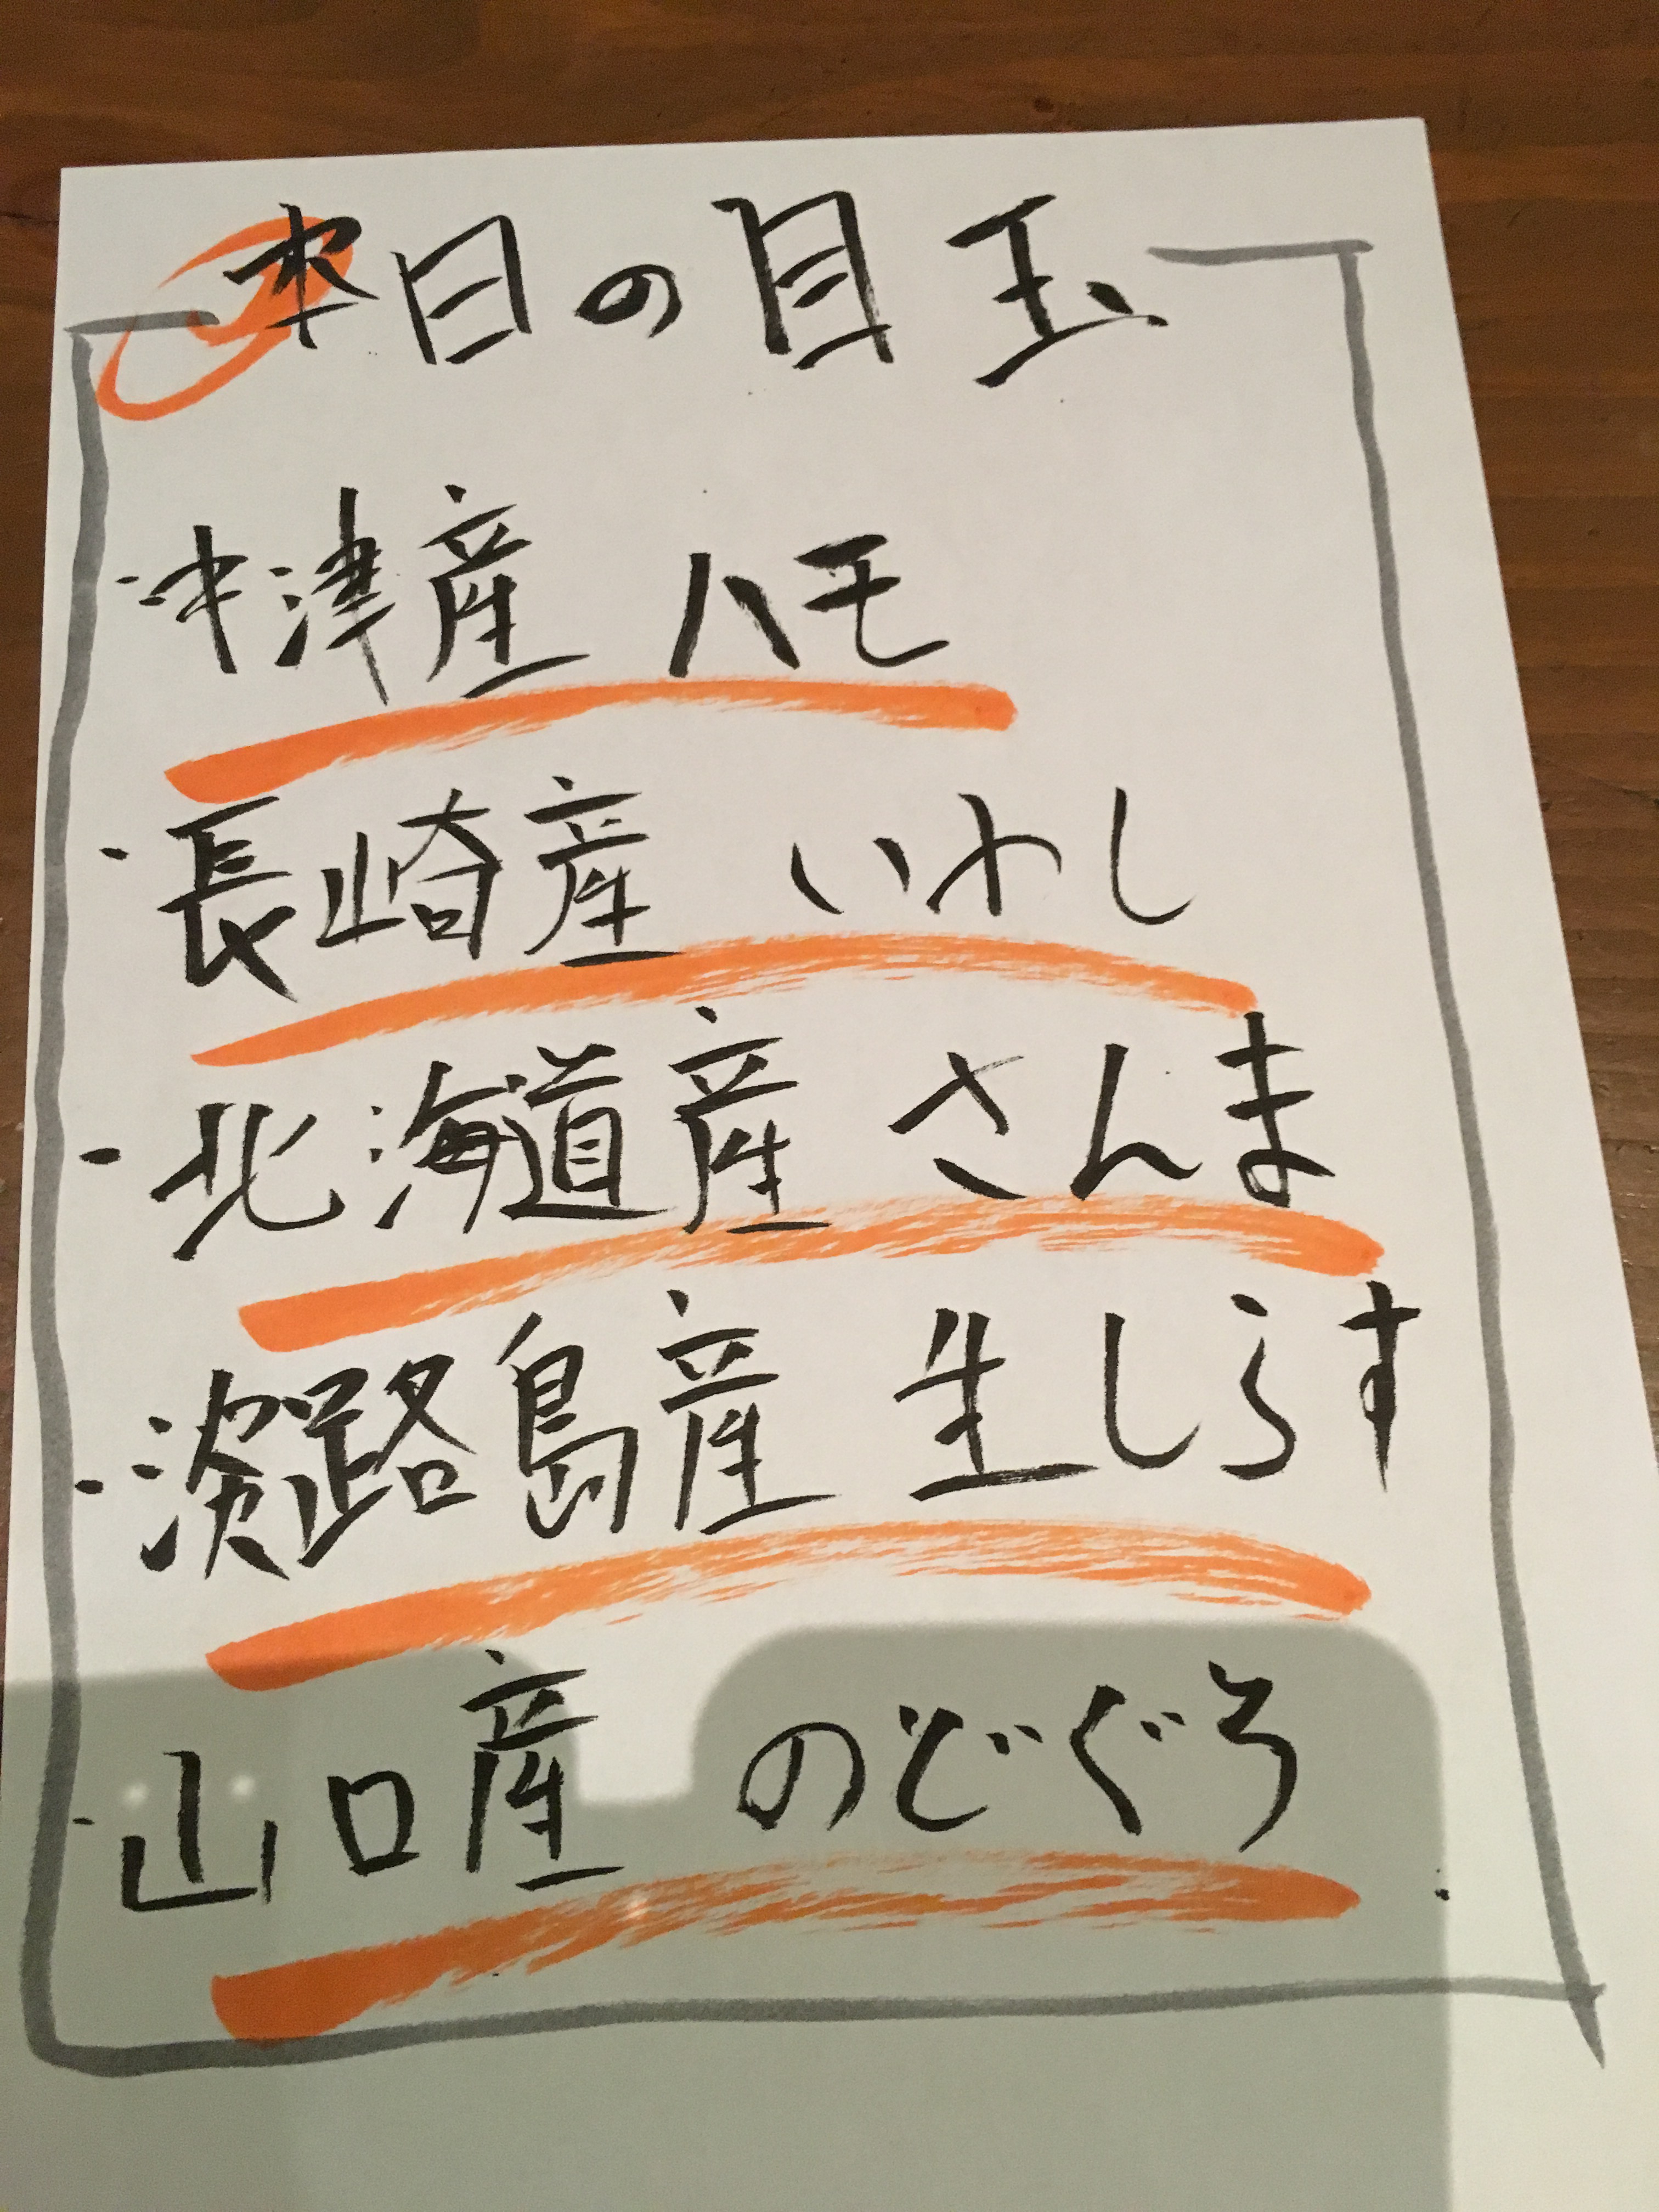 本日の目玉
・中津産 ハモ
・長崎産 いわし
・北海道産 さんま
・淡路島産 生しらす
・山口産 のどぐろ